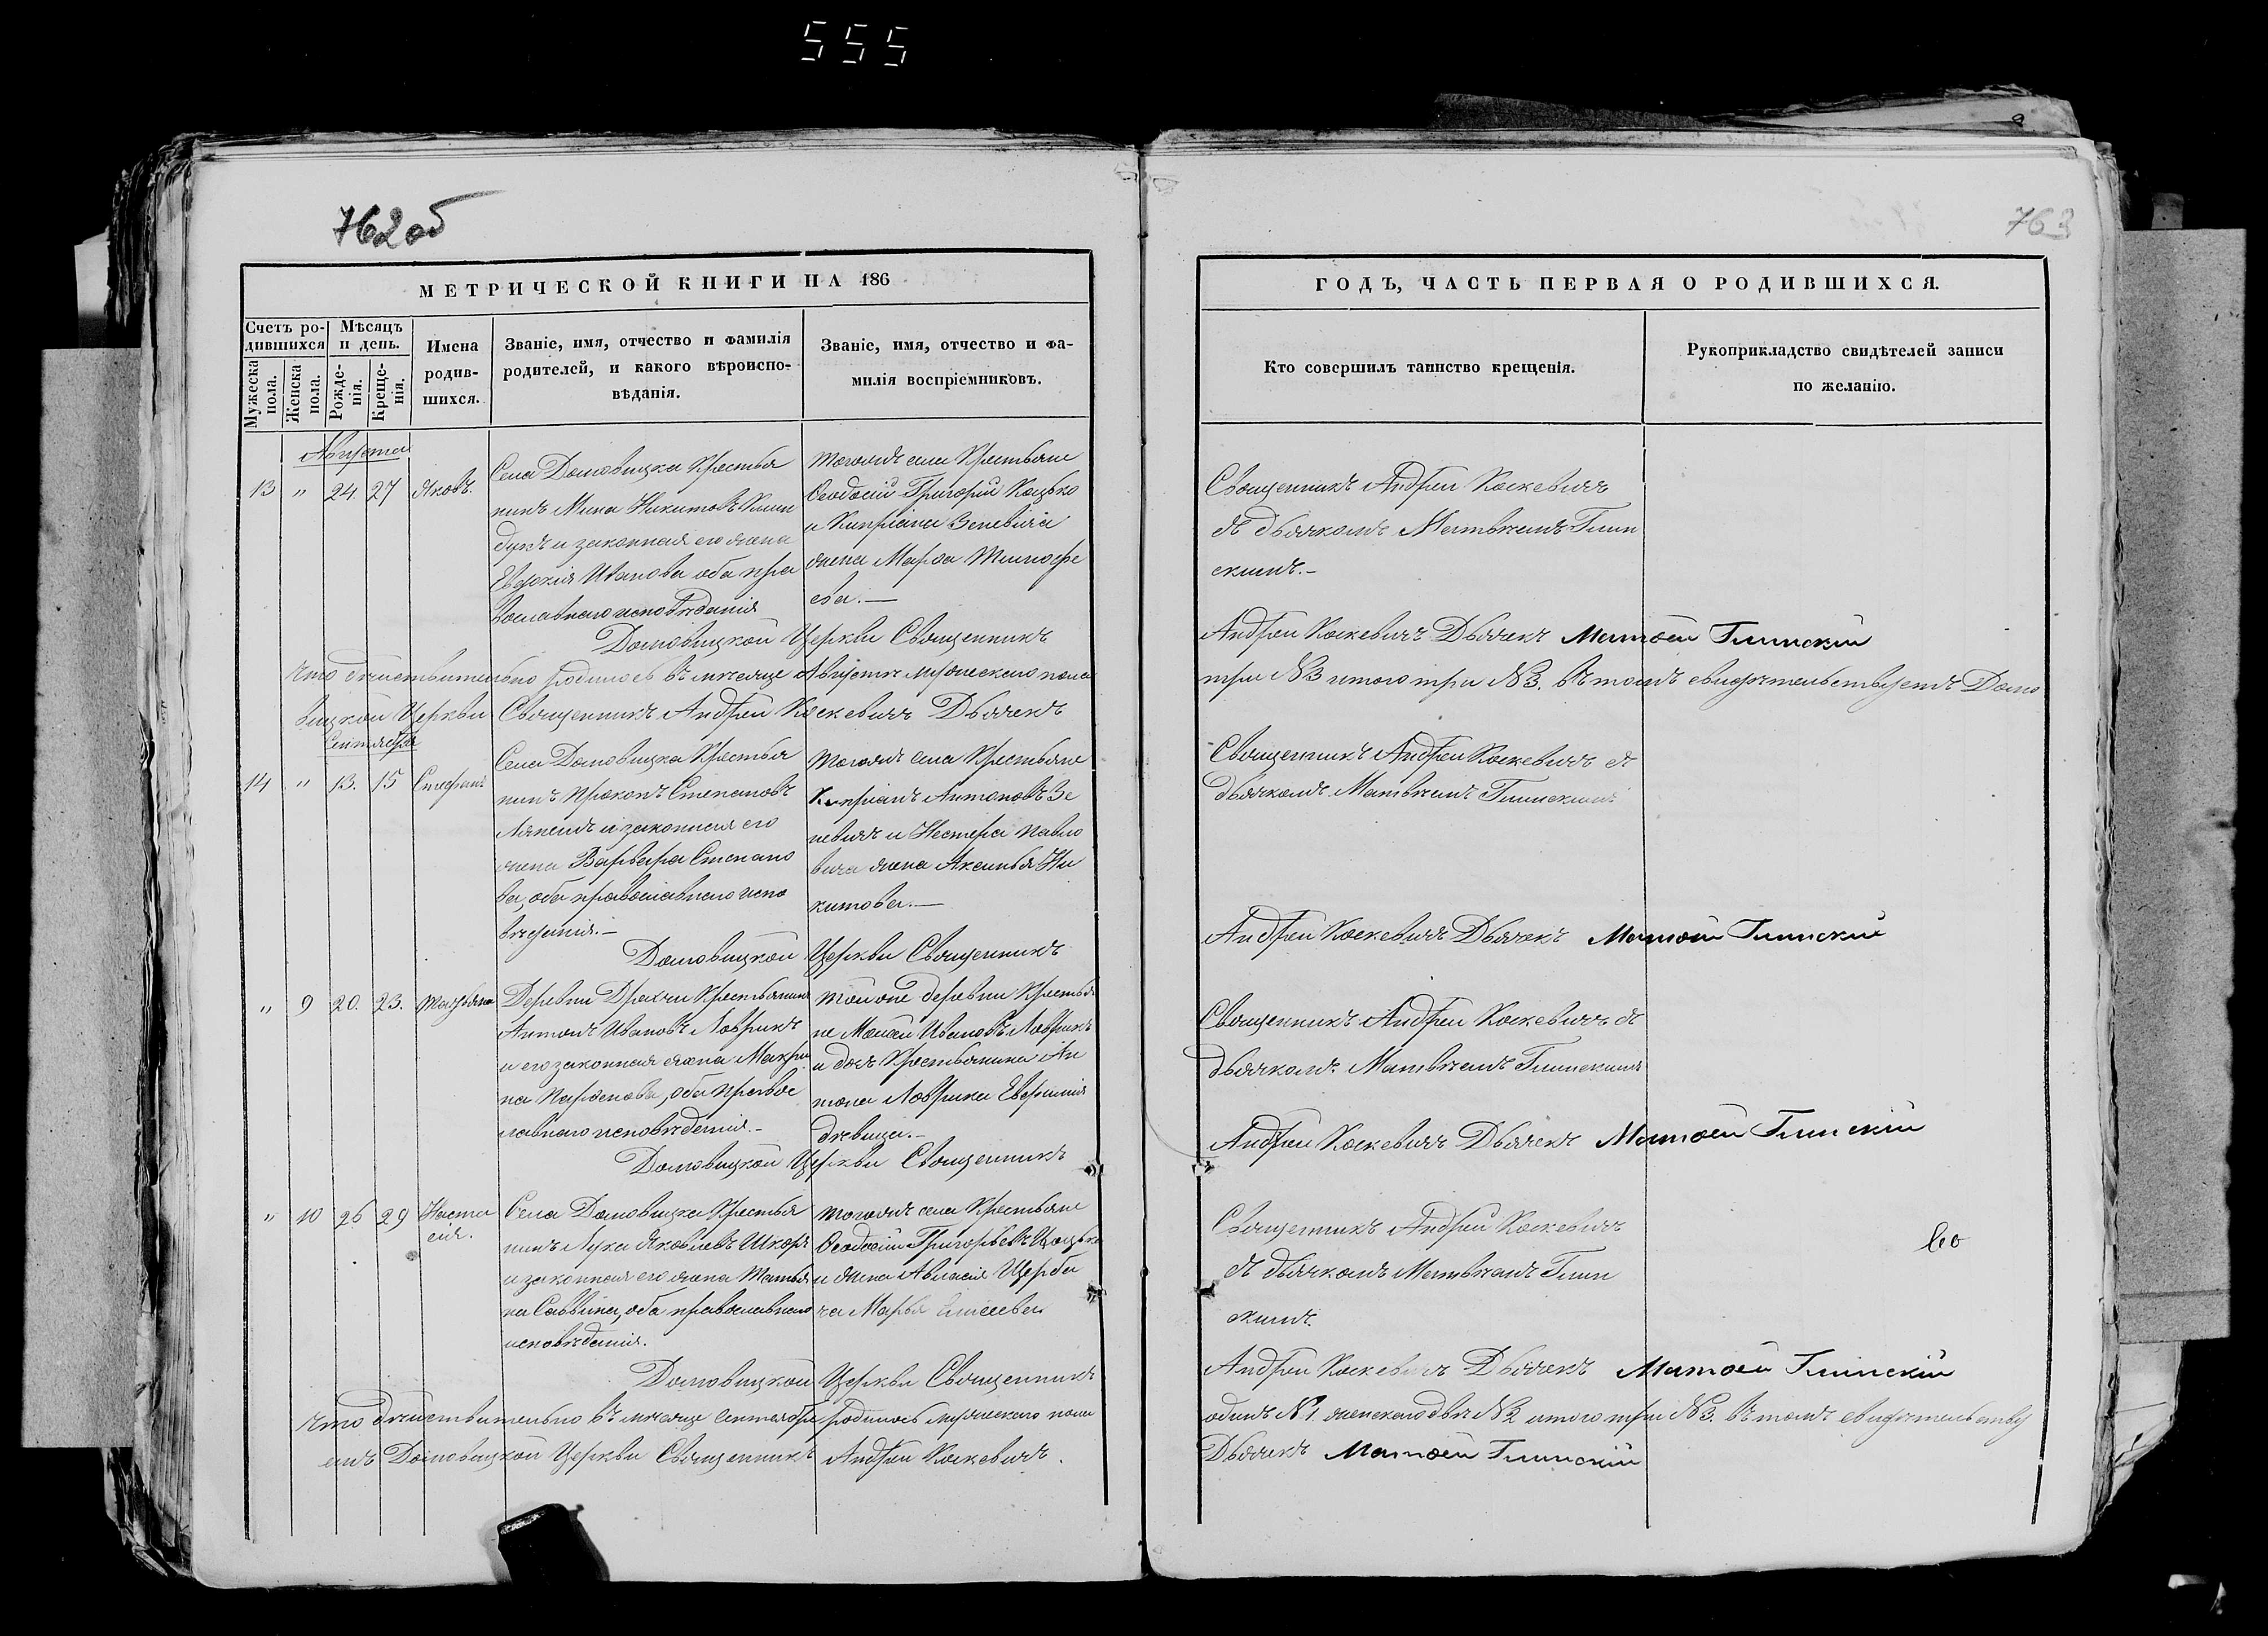 555
762об
763
МЕТРИЧЕСКОЙ КНИГИ НА 186
ГОДЪ, ЧАСТЬ ПЕРВАЯ О РОДИВШИХСЯ.
Счетъ ро-
дившихся
Мужеска пола.
Женска пола.
Мѣсяцъ
и день.
Рожде-
нія.
Креще-
нія.
Имена
родив-
шихся.
Званіе, имя, отчество и фамилія
родителей, и какого вѣроиспо-
вѣданія.
Званіе, имя, отчество и фа-
милія воспріемниковъ.
Кто совершилъ таинство крещенія.
Рукоприкладство свидѣтелей записи
по желанію.
Августа
13 " 24. 27 Яковъ.
Села Домовицка Крестья
нинъ Мина Никитовъ
и законная его жена
Евдокія Иванова оба пра
вославнаго исповѣданія
Тогожъ села Крестьяне
Ѳеодосій Григорій Коцько
и Кипріана Зеневича
жена Марѳа Тимофе
ева.—
Священникъ Андрей Коскевичъ
съ дьячкомъ Матвѣемъ Глин
скимъ.-
Домовицкой Церкви Священникъ
Андрей Коскевичъ Дьячекъ Матѳей Глинскій
Что дѣйствительно родилось въ мѣсяце Августѣ мужескаго пола
три №3 итого три №3. въ томъ свидѣтельствуетъ Домо
вицкой Церкви Священникъ Андрей Коскевичъ Дьячекъ
Сентября
14 " 13. 15 Стефанъ
Села Домовицка Крестья
нинъ Прокопъ Степановъ
и законная его
жена Варвара Степано
ва, оба православнаго испо
вѣданія.—
Тогожъ села Крестьяне
Кипріанъ Антоновъ Зе
невичъ и Нестера Павло
вича жена Аксинья Ни
китова.—
Священникъ Андрей Коскевичъ съ
дьячкомъ Матвѣемъ Глинскимъ
Домовицкой Церкви Священникъ
Андрей Коскевичъ Дьячекъ Матѳей Глинскій
" 9 20. 23. Татьяна
Деревни Крестьянинъ
Антонъ Ивановъ Ловрикъ
и его законная жена Макри
на Парѳенова, оба правос
лавнаго исповѣданія.-
Тойже деревни Крестья
не Ивановъ Ловрикъ
и дочь Крестьянина Ан
тона Ловрика Евфимія
дѣвица.—
Священникъ Андрей Коскевичъ съ
дьячкомъ Матвѣемъ Глинскимъ
Домовицкой Церкви Священникъ
Андрей Коскевичъ Дьячекъ Матѳей Глинскій
" 10 26 29 Наста
сія.
Села Домовицка Крестья
нинъ Лука Яковлевъ
и законная его жена Татья
на Саввина, оба православнаго
исповѣданія.
Тогожъ села Крестьяне
Ѳеодосій Григорьевъ
и жена Щерба
ча Марья
Священникъ Андрей Коскевичъ
съ дьячкомъ Матвѣемъ Глин
скимъ.
Домовицкой Церкви Священникъ
Андрей Коскевичъ Дьячекъ Матѳей Глинскій
Что дѣйствительно въ мѣсяце Сентябре родилось мужескаго пола
одинъ №1. женскаго двѣ №2 итого три №3. въ томъ свидѣтельству
етъ Домовицкой Церкви Священникъ Андрей Коскевичъ.
Дьячекъ Матѳей Глинскій